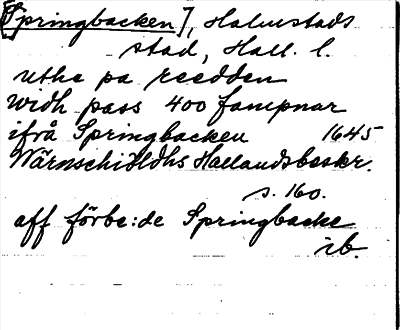 [Springbacken], Halmstads
stad, Hall. l.
uthe pa reedden
widh pass 400 fampnar
ifrå Springbacken 1645
Wärnschiöldhs Hallandsbeskr.
s. 160.
aff förbe:de Springbacke
ib.